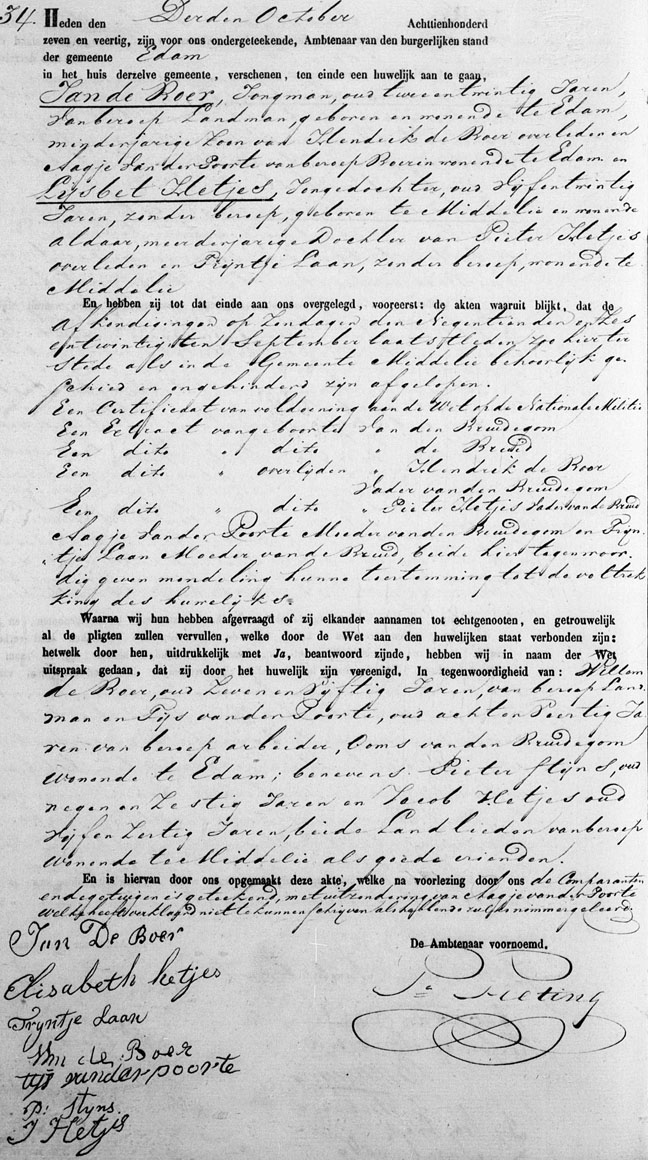 34. Heden den Derden October Achttienhonderd
zeven en veertig, zijn voor ons ondergeteekende, Ambtenaar van den burgerlijken stand
der gemeente Edam
in het huis derzelve gemeente, verschenen, ten einde een huwelijk aan te gaan,
Jan de Boer, Jongman, oud twee en twintig Jaren,
van beroep Landman, geboren en wonende te Edam,
minderjarige Zoon van Hendrik de Boer overleden en
Aagje van der Poorte van beroep Boerin wonende te Edam en
Lijsbet Hetjes, Jongedochter, oud Vijfentwintig
Jaren, zonder beroep, geboren te Middelie en wonende
aldaar, meerderjarige Dochter van Pieter Hetjes
overleden en Trijntje Laan, zonder beroep, wonende te
Middelie
En hebben zij tot dat einde aan ons overgelegd, vooreerst: de akten waaruit blijkt, dat de
afkondigingen op Zondagen den Negentienden en Zes
entwintigsten September laatstleden, zoo hier ter
Stede als in de Gemeente Middelie behoorlijk ge-
schied en ongehinderd zijn afgelopen.
Een Certificaat van voldoening aan de Wet op de Nationale Militie
Een Extract van geboorte van den Bruidegom
Een dito " dito " de Bruid
Een dito " overlijden " Hendrik de Boer
Vader van den Bruidegom
Een dito " dito " Pieter Hetjes Vader van de Bruid
Aagje van der Poorte Moeder van den Bruidegom en Trijn-
tje Laan Moeder van de Bruid, beide hier tegenwoor-
dig geven mondeling hunne toestemming tot de voltrek-
king des huwelijks.
Waarna wij hun hebben afgevraagd of zij elkander aannamen tot echtgenooten, en getrouwelijk
al de pligten zullen vervullen, welke door de Wet aan den huwelijken staat verbonden zijn:
hetwelk door hen, uitdrukkelijk met Ja, beantwoord zijnde, hebben wij in naam der Wet
uitspraak gedaan, dat zij door het huwelijk zijn vereenigd. In tegenwoordigheid van: Willem
de Boer, oud Zeven en Vijftig Jaren, van beroep Land-
man en Tijs van der Poorte, oud acht en Veertig Ja-
ren van beroep arbeider, Ooms van den Bruidegom
wonende te Edam; benevens Pieter Stijns, oud
negen en Zestig Jaren en Jacob Hetjes oud
Vijf en Zestig Jaren, beide Landlieden van beroep
wonende te Middelie als goede vrienden.
En is hiervan door ons opgemaakt deze akte, welke na voorlezing door ons de Comparanten
en de getuigen is geteekend, met uitzondering van Aagje van der Poorte
welke heeft verklaard niet te kunnen schrijven als hebbende zulks nimmer geleerd
De Ambtenaar voornoemd.
Jan De Boer
Elisabeth hetjes
Tryntje Laan
Wm de Boer
tijs vander poorte
P: Styns.
J Hetjes